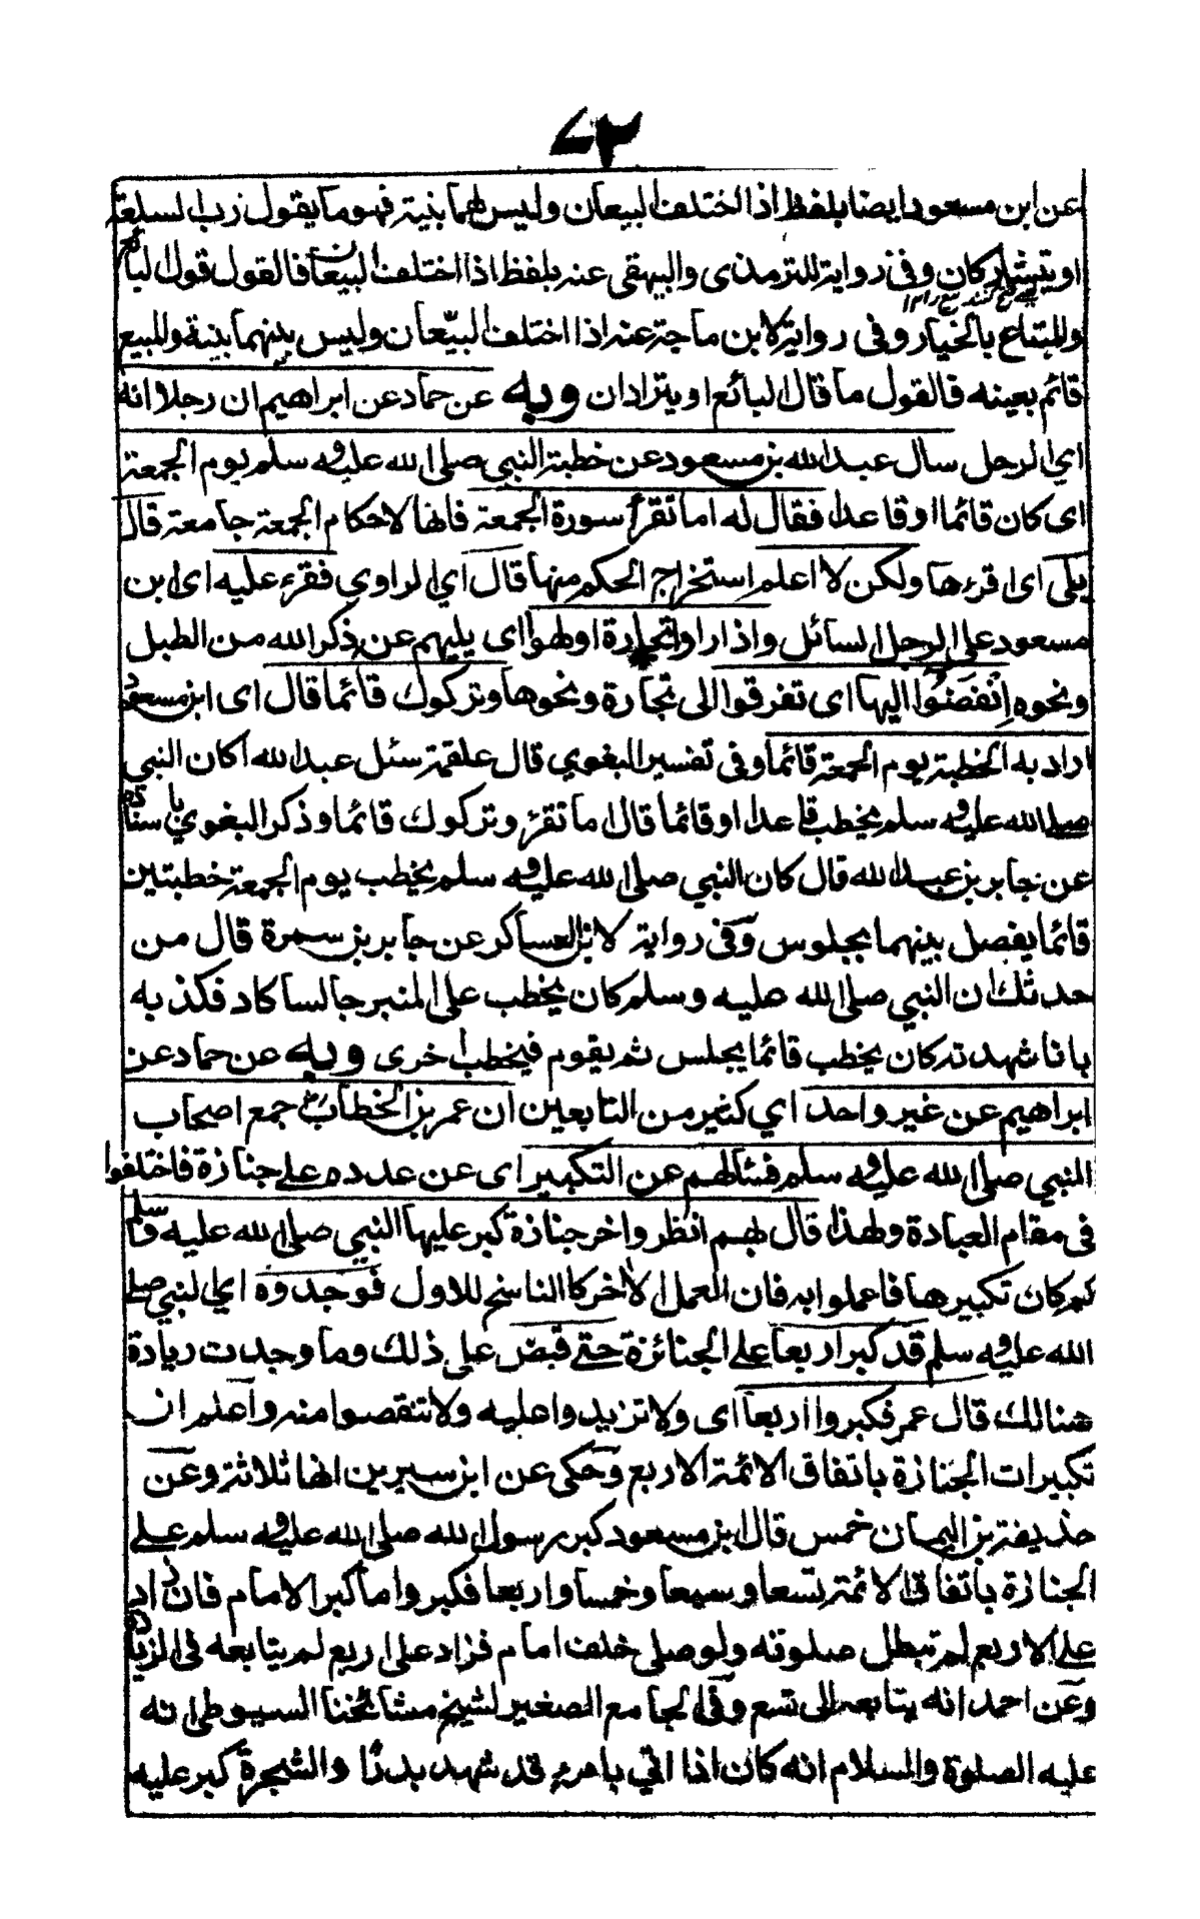 ٧٣
عن ابن مسعود ايضا بلفظ اذا اختلف البيعان وليس لهما بنية فهو ما يقول رب السلعة
او يتتاركان وفى رواية للترمذى والبيهقى عنه بلفظ اذا اختلف البيعان فالقول قول البائع
والمبتاع بالخيار وفى رواية لابن ماجة عنه اذا اختلف البيّعان وليس بينهما بينة وللبيع
قائم بعينه فالقول ما قال البائع او يترادان وبه عن حماد عن ابراهيم ان رجلا انه
اي الرجل سال عبد الله بن مسعود عن خطبة النبي صلى الله عليه وسلم يوم الجمعة
اى كان قائما او قاعدا فقال له اما تقرأ سورة الجمعة فانها لاحكام الجمعة جامعة قال
بلى اى اقرءها ولكن لا اعلم استخراج الحكم منها قال اي الراوي فقرء عليه اى ابن
مسعود على الرجل السائل واذا راوا تجارة او لهوا اى يليهم عن ذكر الله من الطبل
ونحوه انْفَضُوا اليها اى تفرقوا الى تجارة ونحوها وتركوك قائما قال اى ابن مسعود
اراد به الخطبة يوم الجمعة قائما وفى تفسير البغوي قال علقمة سئل عبد الله اكان النبي
صلى الله عليه وسلم يخطب قاعدا او قائما قال اما تقرء وتركوك قائما وذكر البغوي باسناده
عن جابر بن عبد الله قال كان النبي صلى الله عليه وسلم يخطب يوم الجمعة خطبتين
قائما يفصل بينهما بجلوس وفى رواية لابن العساكر عن جابر بن سمرة قال من
حدثك ان النبي صلى الله عليه وسلم كان يخطب على المنبر جالسا كاد فكذبه
بانا شهدته كان يخطب قائما يجلس ثم يقوم فيخطب اخرى وبه عن حماد عن
ابراهيم عن غير واحد اي كثير من التابعين ان عمر بن الخطاب جمع اصحاب
النبي صلى الله عليه وسلم فسئالهم عن التكبير اى عن عدده على جنازة فاختلفوا
فى مقام العبادة ولهذا قال لهم انظروا اخر جنازة كبر عليها النبي صلى الله عليه وسلم
كم كان تكبيرها فاعملوا به فان العمل الاخر كالناسخ للاول فوجدوه اي النبي صلى
الله عليه وسلم قد كبر اربعا على الجنائزة حتى قبض على ذلك وما وجدت زيادة
هنالك قال عمر فكبروا اربعا اى ولا تزيدوا عليه ولا تنقصوا منه واعلم ان
تكبيرات الجنازة باتفاق الائمة الاربع وحكى عن ابن سيرين انها ثلاثة وعن
حذيفة بن اليمان خمس قال ابن مسعود كبر رسول الله صلى الله عليه وسلم على
الجنازة باتفاق الائمة تسعا وسبعا وخمسا واربعا فكبروا ما كبر الامام فان زاد
على الاربع لم تبطل صلوته ولو صلى خلف امام فزاد على اربع لم يتابعه فى الزيادة
وعن احمد انه يتابعه الى تسع وفى الجامع الصغير لشيخ مشائخنا السيوطى انه
عليه الصلوة والسلام انه كان اذا اتي بامرء قد شهد بدرًا والشجرة كبر عليه